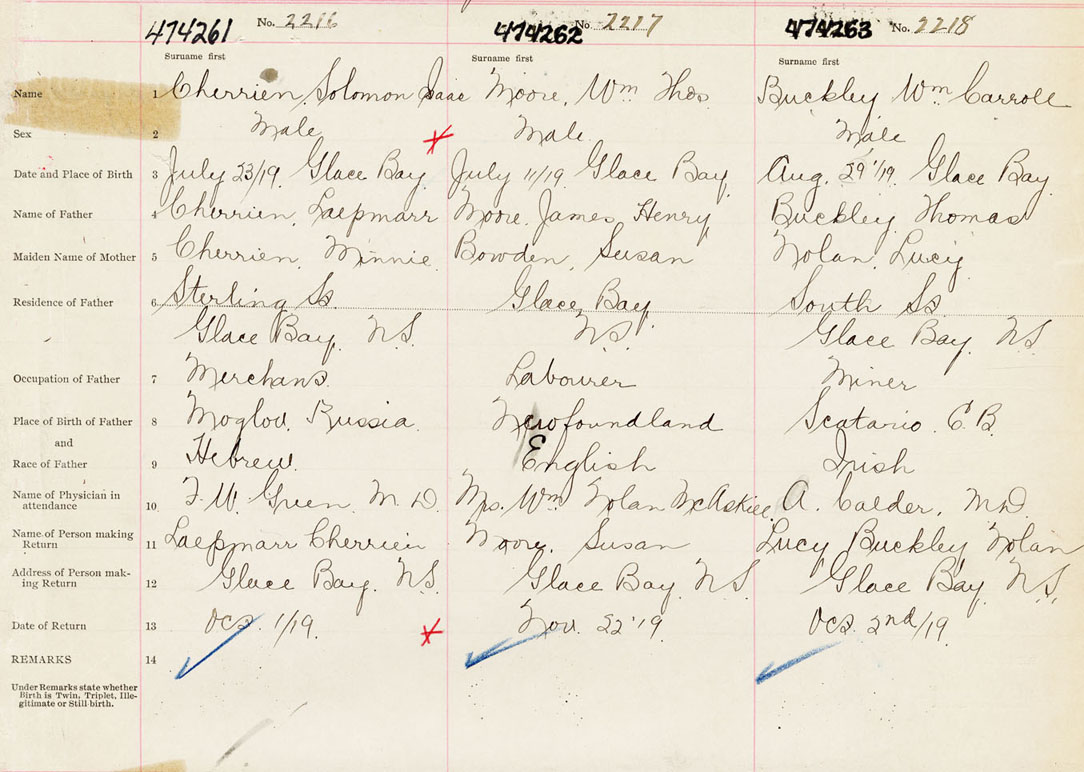 474261 No. 2216 474262 No. 2217 474263 No. 2218
Surname first Surname first Surname first
Name 1 Cherrien, Solomon Isaac Moore, Wm Thos. Buckley Wm Carroll
Sex 2 Male Male Male
Date and Place of Birth 3 July 23/19. Glace Bay July 11/19 Glace Bay, Aug. 29'/19. Glace Bay.
Name of Father 4 Cherrien, Laepmarr Moore, James Henry Buckley, Thomas
Maiden Name of Mother 5 Cherrien, Minnie Bowden, Susan Nolan, Lucy
Residence of Father 6 Sterling St. Glace Bay South St.
Glace Bay, N.S. N.S. Glace Bay, N.S.
Occupation of Father 7 Merchant. Labourer Miner
Place of Birth of Father 8 Russia. Newfoundland Scatario C.B.
and
Race of Father 9 Hebrew. English Irish
Name of Physician in attendance 10 F. W. Green M.D. Mrs. Wm Nolan McAskill A. Calder, M.D.
Name of Person making Return 11 Laepmarr Cherrien Moore, Susan Lucy Buckley Nolan
Address of Person mak-ing Return 12 Glace Bay. N.S. Glace Bay, N.S. Glace Bay, N.S.
Date of Return 13 Oct. 1/19. Nov. 22'19 Oct. 2nd/19
REMARKS 14
Under Remarks state whether
Birth is Twin, Triplet, Ille-
gitimate or Still-birth.